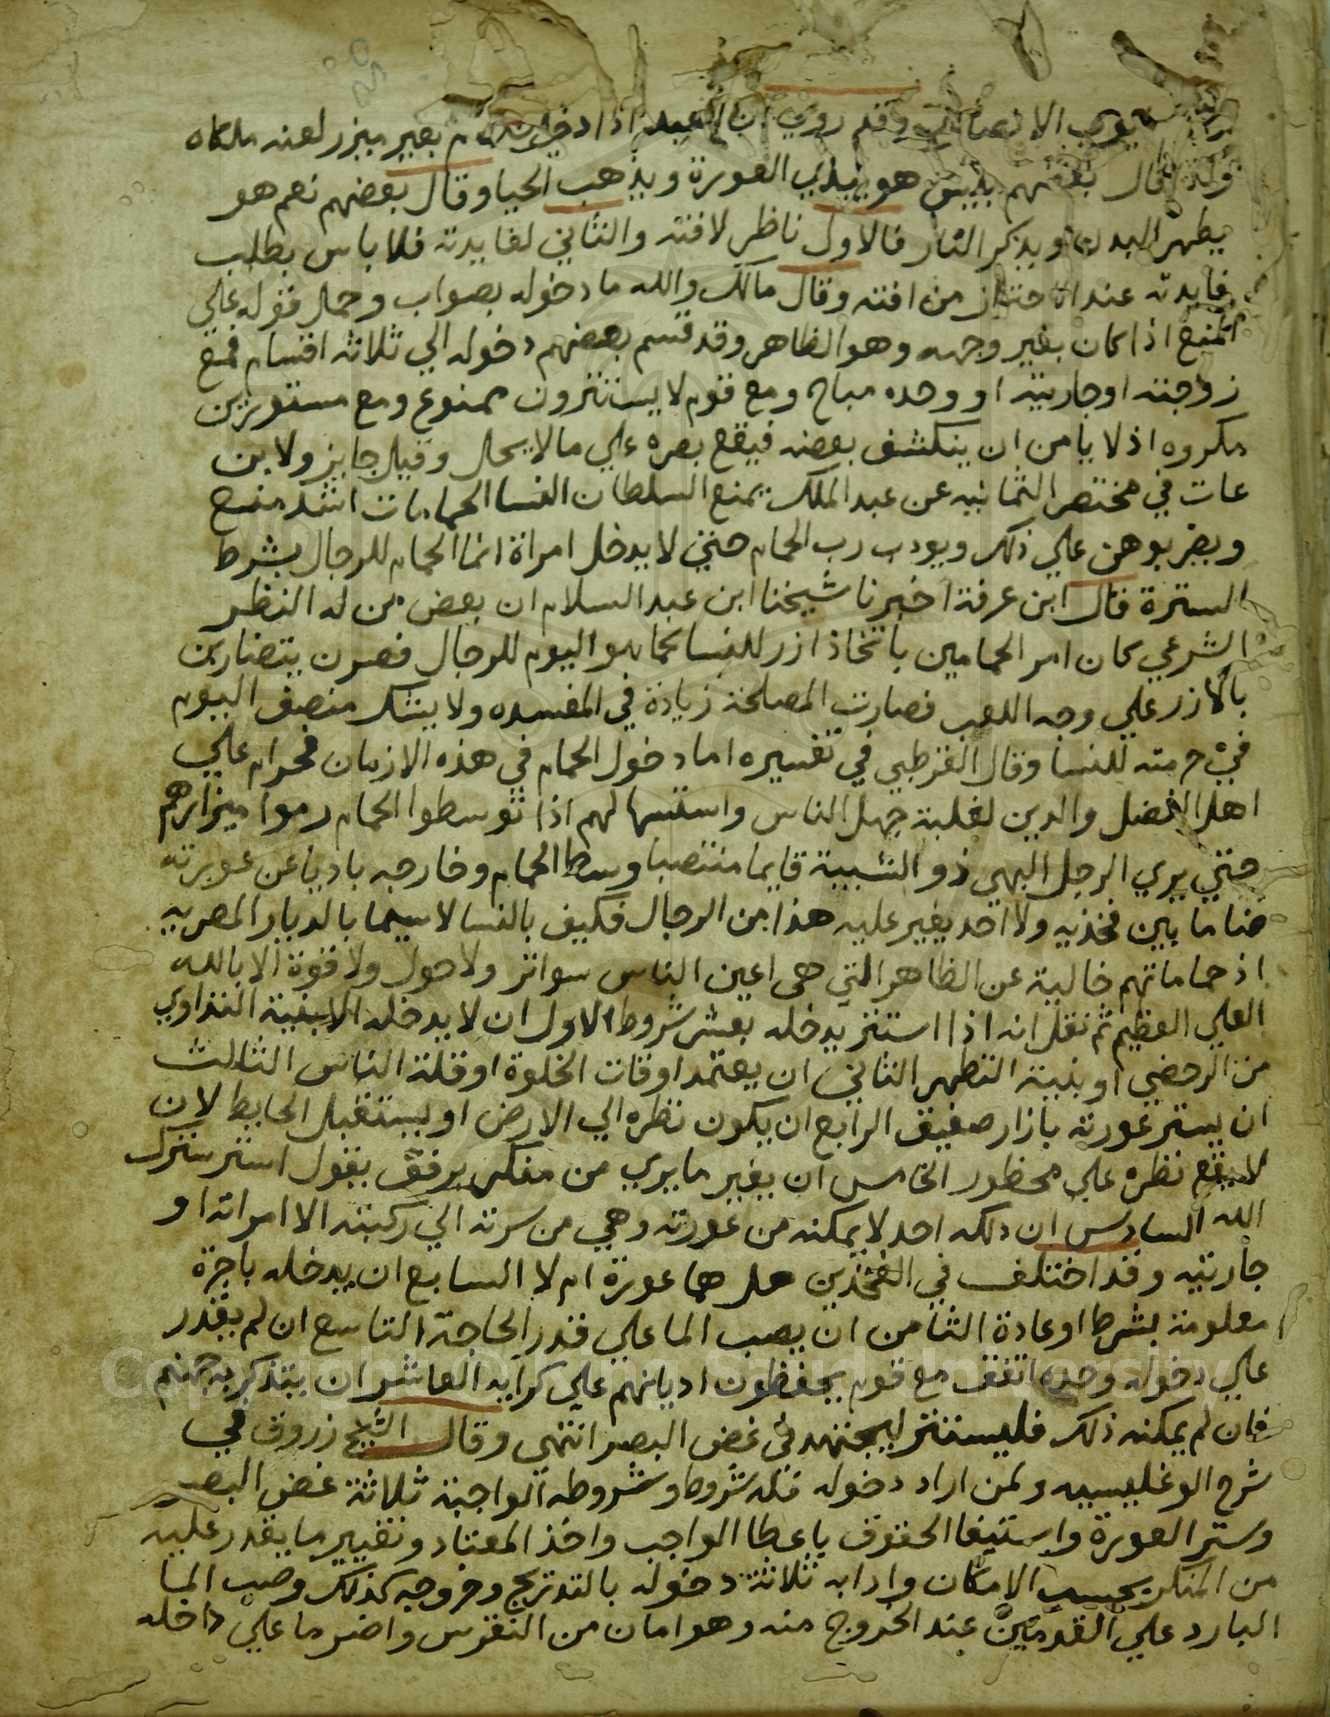 يوجب الا وقد روي ان العبد اذا دخل الحمام بغير ميزر لعنه ملكاه
ولذا قال بعضهم بيس هو يبدي العورة ويذهب الحيا وقال بعضهم نعم هو
يطهر البدن ويذكر النار فالاول ناظر لافته والثاني لفايدته فلا باس بطلب
فايدته عند الاحتراز من افته وقال مالك والله ما دخوله بصواب وحمل قوله علي
المنع اذا كان بغير وجهه وهو الظاهر وقد قسم بعضهم دخوله الي ثلاثة اقسام فمع
زواجته او جاريته او وحده مباح ومع قوم لا يستترون ممنوع ومع مستورين
مكروه اذ لا يامن ان ينكشف بعضه فيقع بصره علي ما لا يحل وقيل جايز ولابن
عات في مختصر الثمانيه عن عبد الملك يمنع السلطان النسا الحمامات اشد منع
ويضربوهن علي ذلك ويودب رب الحمام حتي لا يدخل امراة انما الحمام للرجال بشرط
السترة قال ابن عرفة اخبرنا شيخنا ابن عبد السلام ان بعض من له النظر
الشرعي كان امر الحمامين باتخاذ ازر للنسا كما هو اليوم للرجال فصرن يتضاربن
بالازر علي وجه اللعب فصارت المصلحة زيادة في المفسده ولا يشك منصف اليوم
في حرمته للنسا وقال القرطبي في تفسيره اما دخول الحمام في هذه الازمان فحرام علي
اهل الفضل والدين لغلبة جهل الناس واستسهالهم اذا توسطوا الحمام رموا ميزارهم
حتي يري الرجل البهي ذو الشيبة قايما منتصبا وسط الحمام وخارجه باديا عن عورته
ضاما بين فخذيه ولا احد يغير عليه هذا من الرجال فكيف بالنسا لا سيما بالديار المصريه
اذ حماماتهم خالية عن الظاهر التي هي اعين الناس سواتر ولا حول ولا قوة الا بالله
العلي العظيم ثم نقل انه اذا استتر يدخله بعشر شروط الاول ان لا يدخله الا بنية التداوي
من الرحضي او بنية التطهر الثاني ان يعتمد اوقات الخلوة او قلة الناس الثالث
ان يستر عورته بازار صفيق الرابع ان يكون نظره الي الارض او يستقبل الحايط لان
لا يقع نظره علي محظور الخامس ان يغير ما يري من منكر برفق يقول استر سترك
الله السادس ان دلكه احد لا يمكنه من عورته وهي من سرته الي ركبته الا امراته او
جاريته وقد اختلف في الفخذين هل هما عورة ام لا السابع ان يدخله باجرة
معلومة بشرط او عادة الثامن ان يصب الما علي قدر الحاجة التاسع ان لم يقدر
علي دخوله وحده اتفق مع قوم يحفظون اديانهم علي كرايه العاشر ان يتذكر به جهنم
فان لم يمكنه ذلك فليستتر ليجتهد في غض البصر انتهي وقال الشيخ زروق في
شرح الوغليسيه ولمن اراد دخوله فله شروط وشروطه الواجبة ثلاثة غض البصر
وستر العورة واستيفا الحقوق باعطا الواجب واخذ المعتاد وتغيير ما يقدر عليه
من المنكر بحسب الامكان وادابه ثلاثة دخوله بالتدريج وخروجه كذلك وصب الما
البارد علي القدمين عند الخروج منه وهو امان من النقرس واضر ما علي داخله